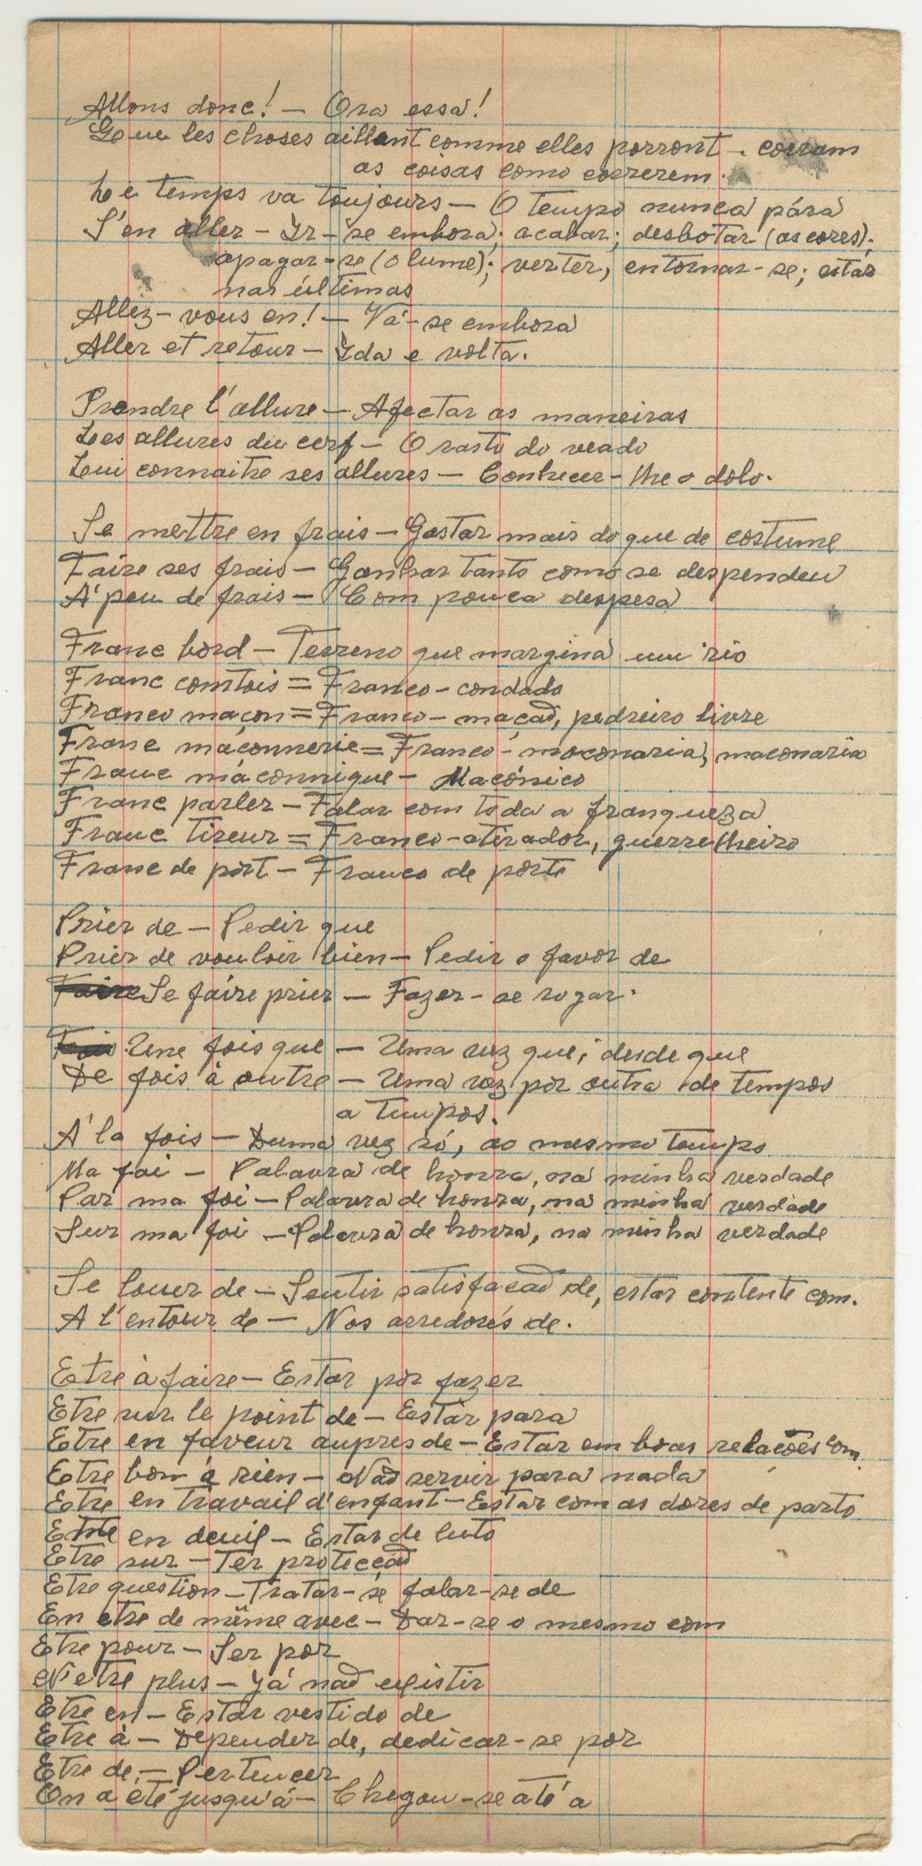 Allons donc! — Ora essa!
Que les choses aillent comme elles porront — corram
as coisas como correrem.
Le temps va toujours — O tempo nunca pára
S'en aller — Ir-se embora; acabar; desbotar (as cores);
apagar-se (o lume); verter, entornar-se; estar
nas últimas
Allez-vous en! — Vá-se embora
Aller et retour — Ida e volta.
Prendre l'allure — Afectar as maneiras
Les allures du cerf — O rasto do veado
Lui connaitre ses allures — Conhecer-lhe o dolo.
Se mettre en frais — Gastar mais do que de costume
Faire ses frais — Ganhar tanto como se despendeu
A' peu de frais — Com pouca despesa
Franc bord — Terreno que margina um rio
Franc comtois = Franco-condado
Franco maçon = Franco-mação, pedreiro livre
Franc maçonnerie = Franco-maçonaria, maconaria
Franc máconnique — Macónico
Franc parler — Falar com toda a franqueza
Franc tireur = Franco-atirador, guerrelheiro
Franc de port — Franco de porte
Prier de — Pedir que
Prier de vouloir bien — Pedir o favor de
Se faire prier — Fazer-se rogar.
Une fois que — Uma vez que; desde que
De fois à autre — Uma vez por outra de tempos
a tempos.
A' la fois — Duma vez só, ao mesmo tempo
Ma foi — Palavra de honra, na minha verdade
Par ma foi — Palavra de honra, na minha verdade
Sur ma foi — Palavra de honra, na minha verdade
Se louer de — Sentir satisfação de, estar contente com.
A l'entour de — Nos arredores de.
Etre à faire — Estar por fazer
Etre sur le point de — Estar para
Etre en faveur aupres de — Estar em boas relações com
Etre bon à rien — Não servir para nada
Etre en travail d'enfant — Estar com as dores de parto
Etre en deuil — Estar de luto
Etre sur — Ter protecção
Etre question — Tratar-se falar-se de
En etre de même avec — Dar-se o mesmo com
Etre pour — Ser por
N'etre plus — Já não existir
Etre en — Estar vestido de
Etre à — Depender de, dedicar-se por
Etre de — Pertencer
On a été jusqu'à — Chegou-se até a